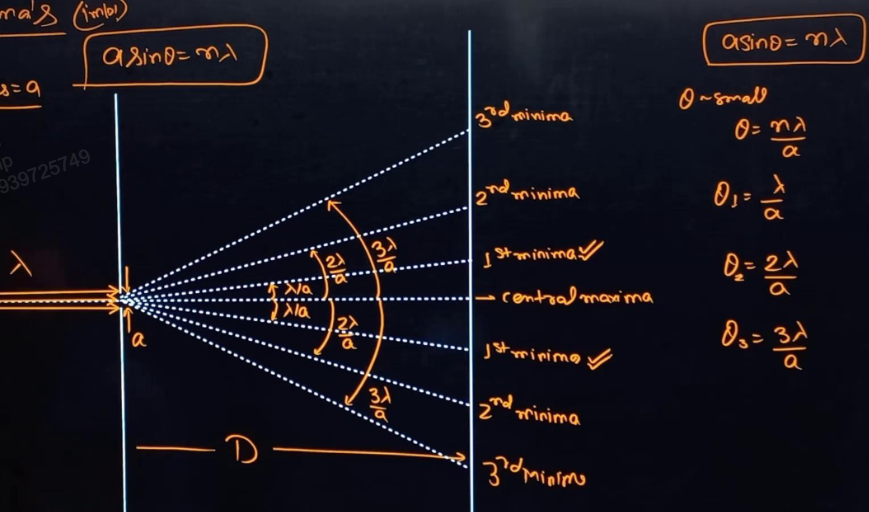 ma's (imp)
a sinθ = nλ
s = a
939725749
λ
a
λ/a
λ/a
2λ/a
2λ/a
3λ/a
3λ/a
D
3rd minima
2nd minima
1st minima
central maxima
1st minima
2nd minima
3rd minima
a sinθ = nλ
θ ~ small
θ = nλ/a
θ1 = λ/a
θ2 = 2λ/a
θ3 = 3λ/a